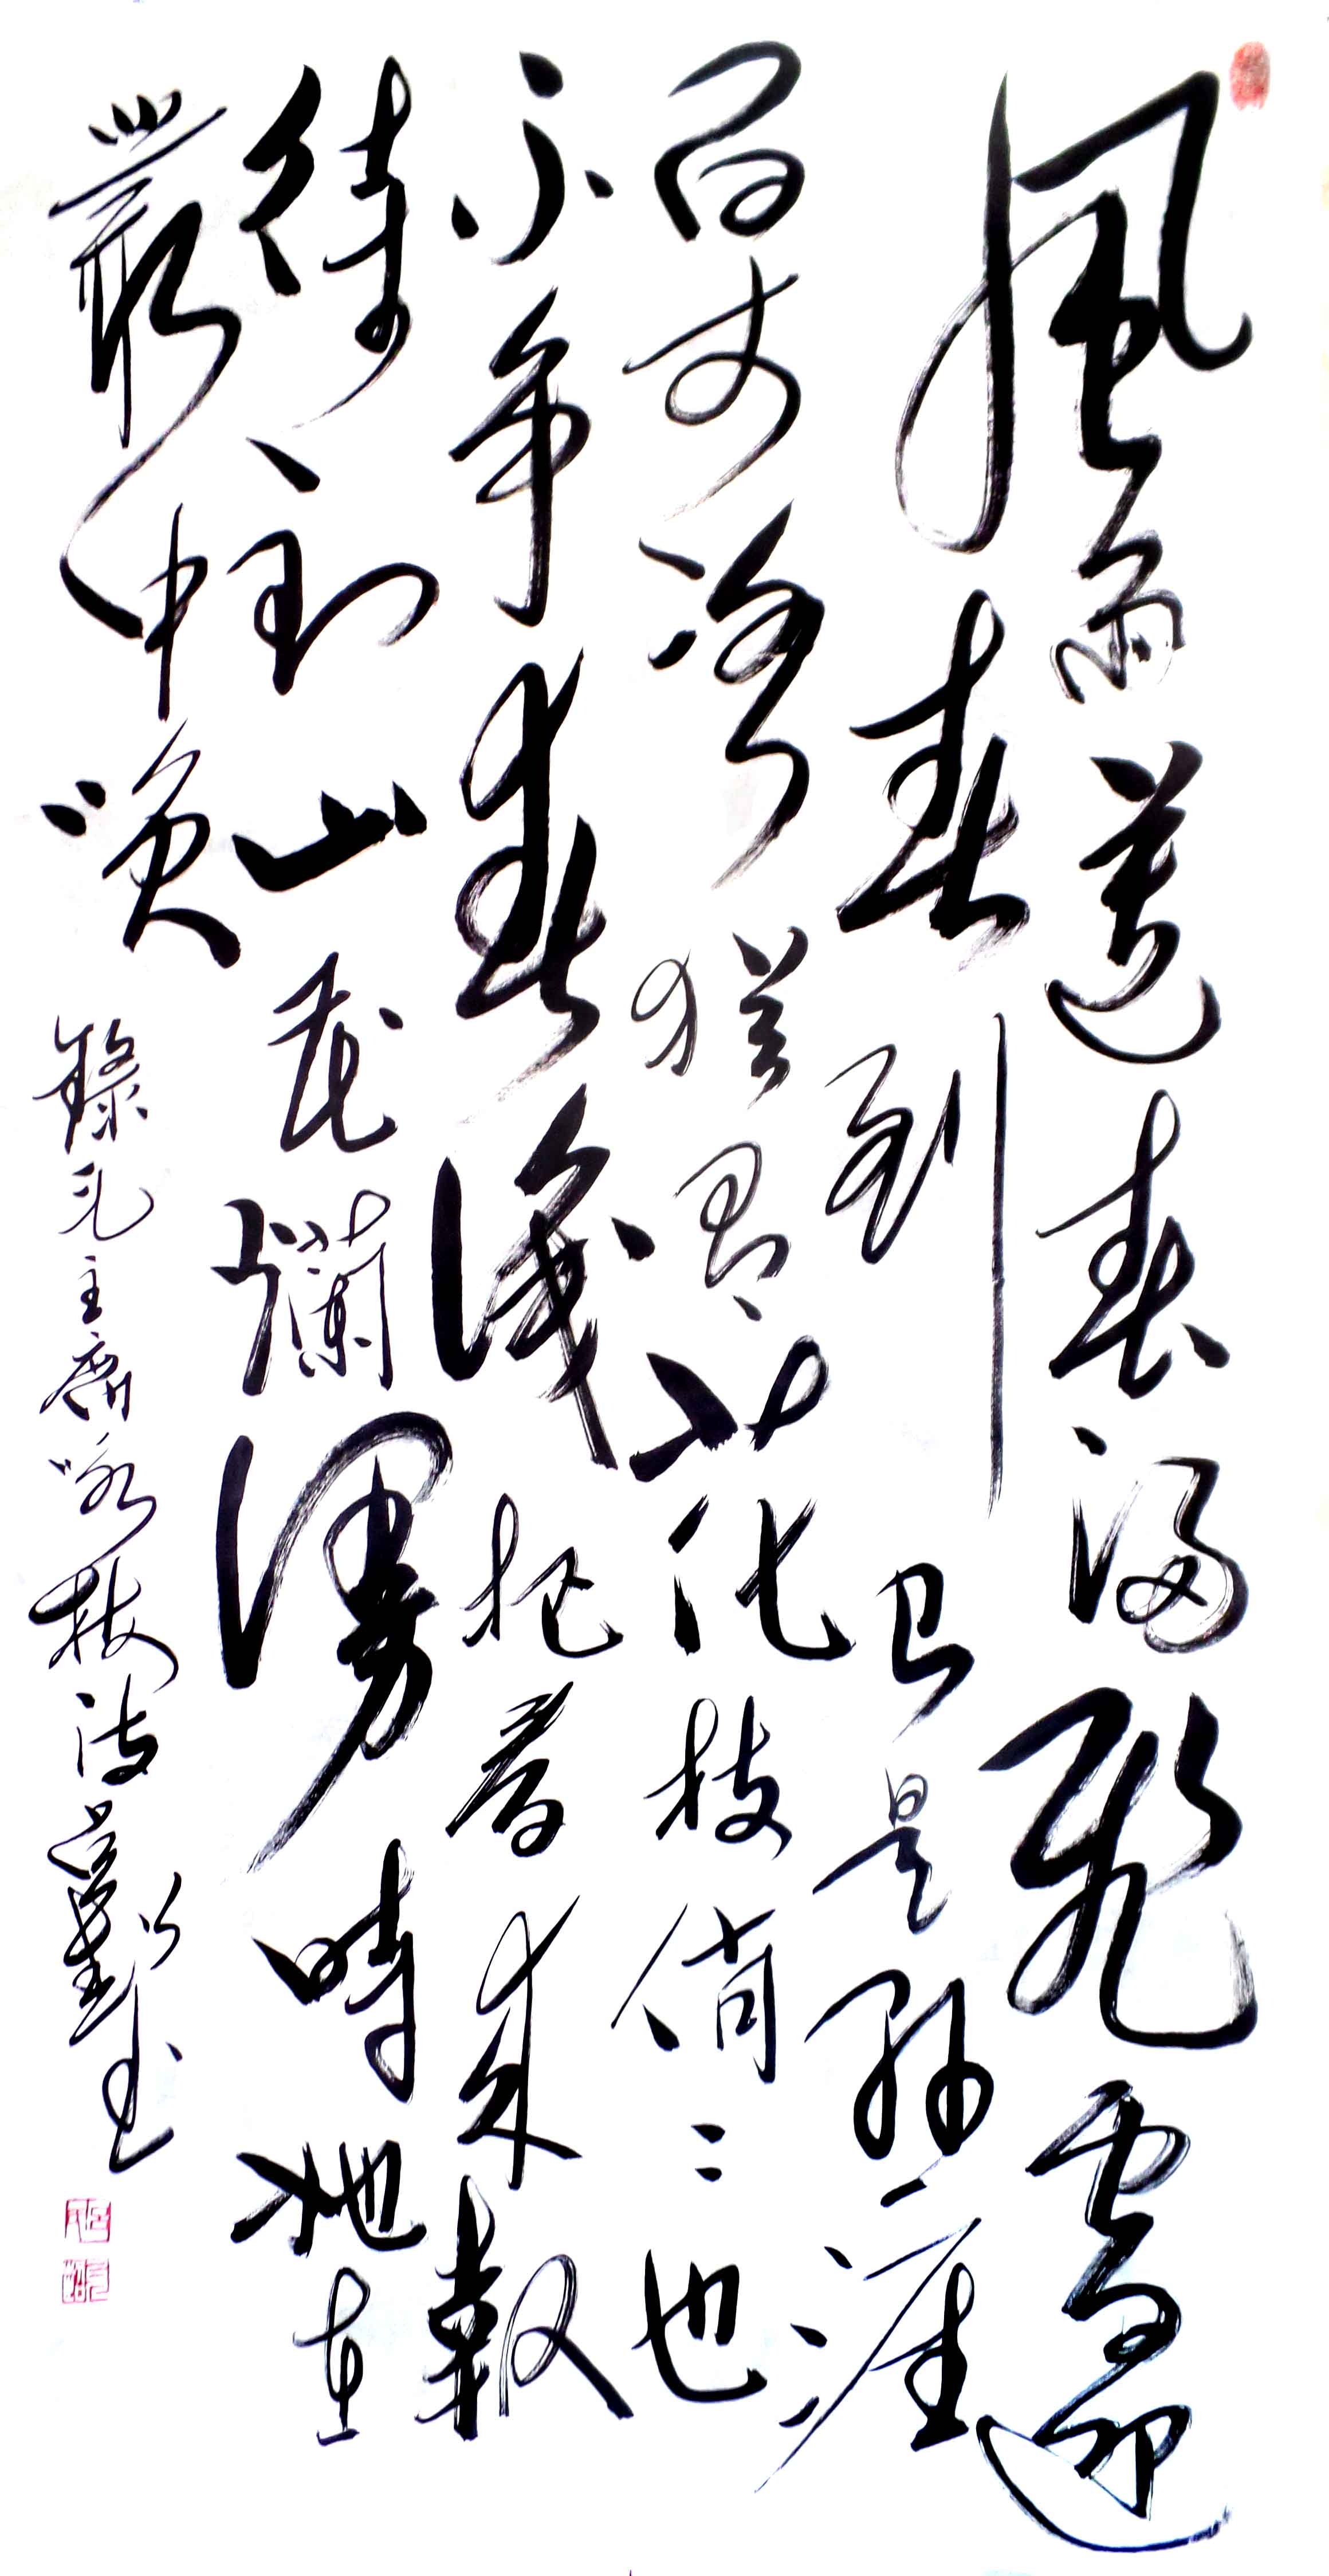 風雨送春歸飛雪迎
春到已是懸崖
百丈冰猶有花枝俏〻也
不争春把春来報
待到山花爛漫時她在
叢中笑
錄毛主席咏梅